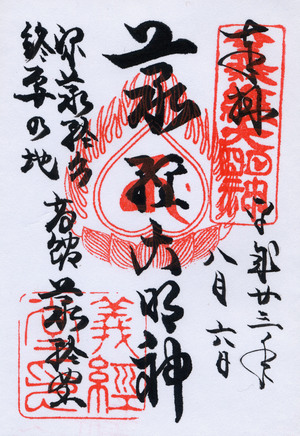 奉拝
平成廿三年
八月六日
義経大明神
源義経公
終焉の地
高館 義経堂
義經